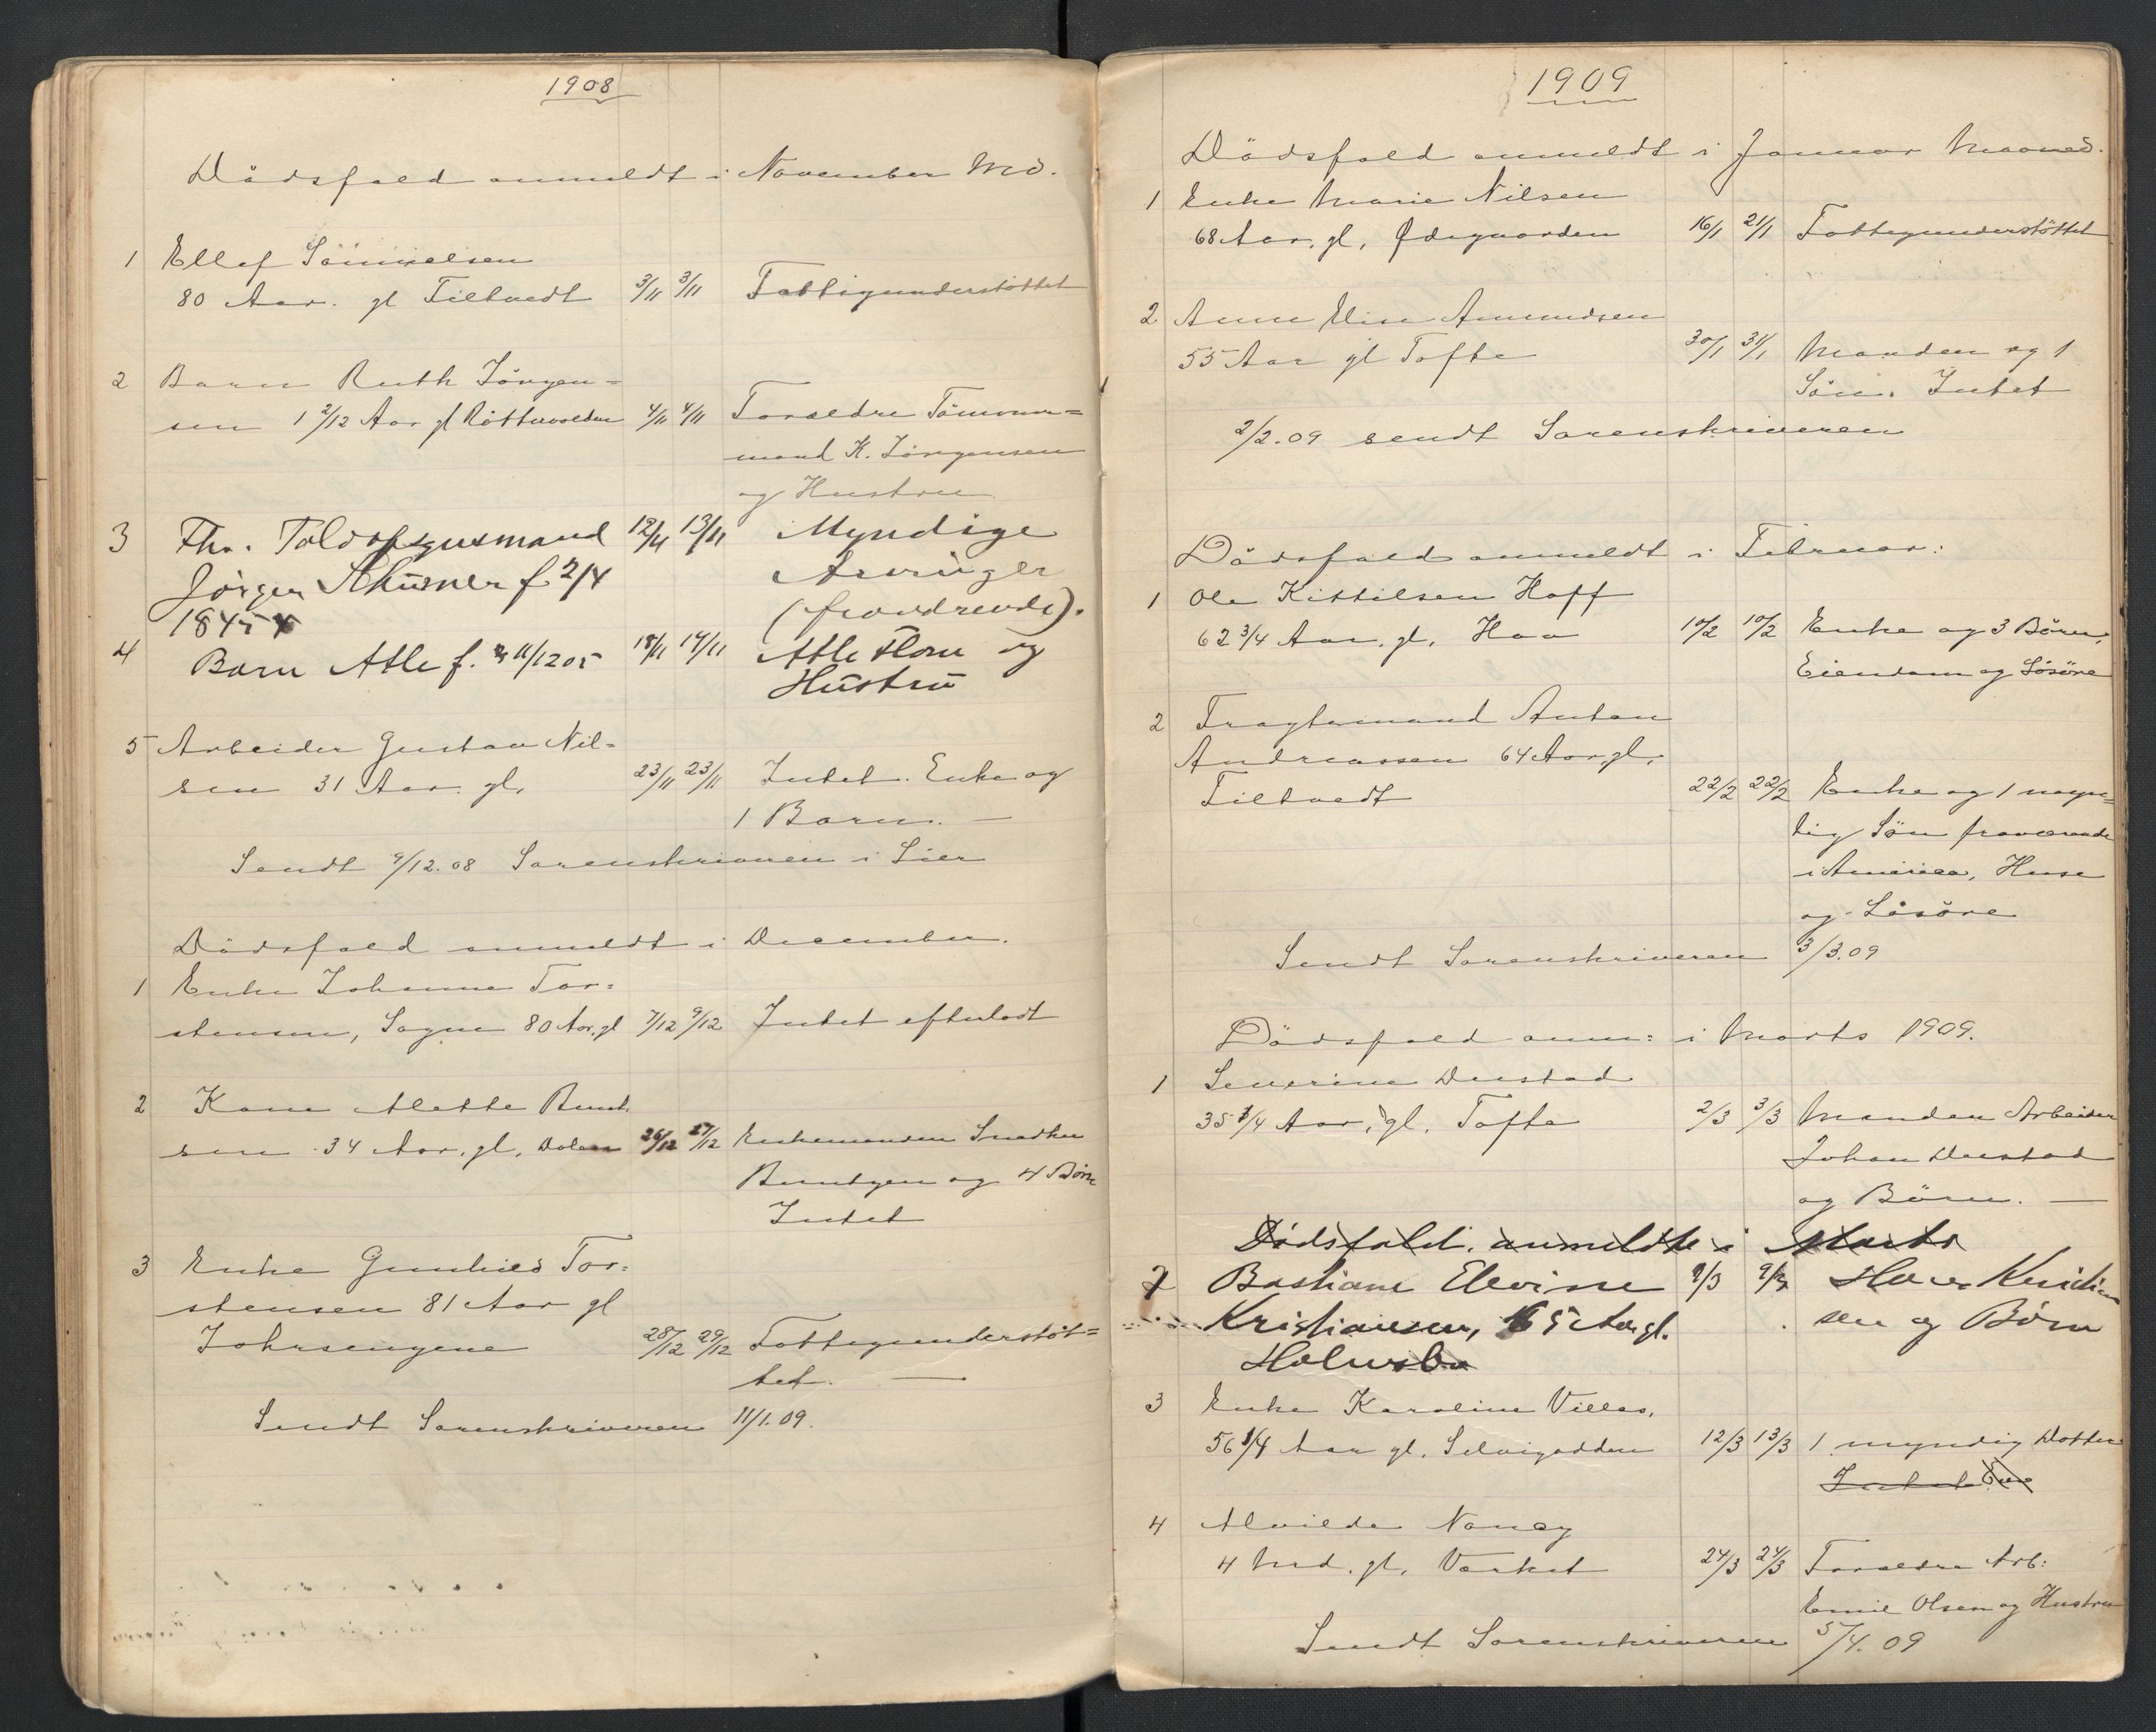 1908
Dödsfald anmeldt i November Md.
1 Ellef Sömmelsen
80 Aar. gl Tiltvedt 3/11 3/11 Fattigunderstöttet
2 Barn Ruth Jörgen=
sen 1 2/12 Aar gl 4/11 4/11 Foraeldre Tömmer=
mand K. Jörgensen
og Hustru
3 Fhv. Toldopsynsmand 12/11 13/11 Myndige
Jörgen f 2/4 Arvinger
1845 (fraværende).
4 Barn Atle f. 11/12 05 18/11 19/11 Atle og
Hustru
5 Arbeider Gustav Nil=
sen 31 Aar. gl. 23/11 23/11 Intet. Enke og
1 Barn. —
Sendt 9/12.08 Sorenskriveren i Lier
Dödsfald anmeldt i December.
1 Enke Johanne Tor=
stensen, Sagene 80 Aar. gl 7/12 9/12 Intet efterladt
2 Kone Alette Bernt
sen 34 Aar. gl. Dalen 26/12 27/12 Enkemanden Snedker
Berntsen og 4 Børn
Intet
3 Enke Gunhild Tor=
stensen 81 Aar gl
28/12 29/12 Fattigunderstöt=
tet. —
Sendt Sorenskriveren 11/1.09.
1909
Dödsfald anmeldt i Januar Maaned.
1 Enke Marie Nilsen
68 Aar. gl, Ødegaarden 16/1 21/1 Fattigunderstöttet
2 Anne Elise Amundsen
55 Aar gl Tofte 30/1 31/1 Manden og 1
Sön. Intet
2/2.09 sendt Sorenskriveren
Dödsfald anmeldt i Februar:
1 Ole Kittilsen Hoff
62 3/4 Aar. gl. Haa 10/2 10/2 Enke og 3 Börn,
Eiendom og Lösöre
2 Fragtemand Anton
Andreassen 64 Aar gl.
Tiltvedt 22/2 22/2 Enke og 1 myn=
dig Sön fraværende
i America, Huse
og Lösöre
Sendt Sorenskriveren 3/3.09
Dödsfald anm: i Marts 1909.
1 Severine Deustad
35 3/4 Aar, gl. Tofte 2/3 3/3 Manden Arbeider
Johan Deustad
og Börn. —
Dödsfald. anmeldte i Marts
2 Bastiane Elevine 9/3 9/3 Hans Kristian
Kristiansen, 65 Aar gl. sen og Börn
Holmsbu
3 Enke Karoline Villas,
56 1/4 Aar gl. Selvigodden 12/3 13/3 1 myndig Datter
Intet
4 Alvilde Nancy
4 Md. gl. Værket 24/3 24/3 Foraeldre Arb:
Emil Olsen og Hustru
Sendt Sorenskriveren 5/4.09